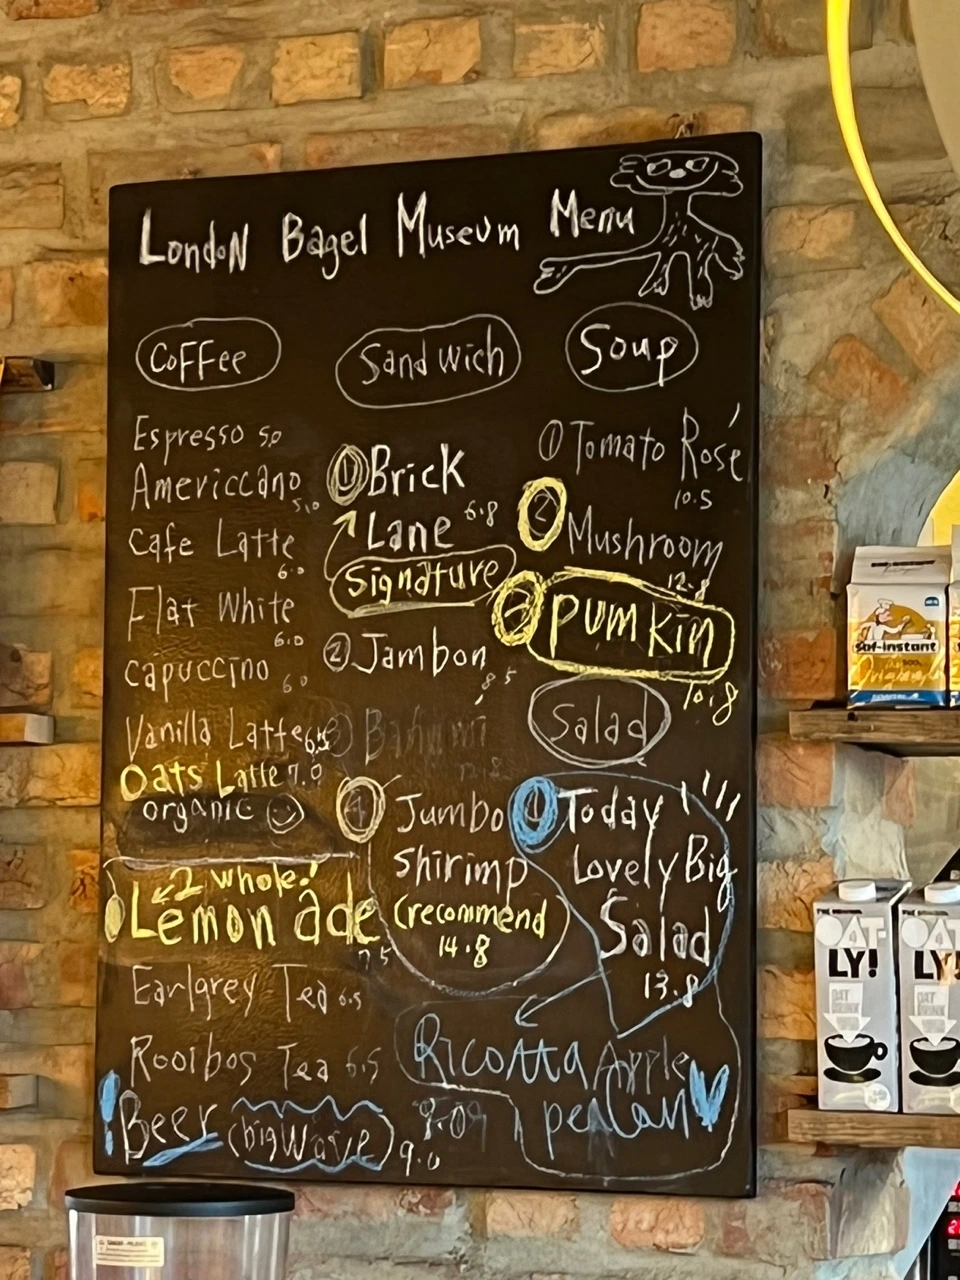 London Bagel Museum Menu
Coffee
Espresso 5.0
Americcano 5.0
Cafe Latte 6.0
Flat White 6.0
capuccino 6.0
Vanilla Latte 6.5
Oats Latte 7.0
organic
2 whole!
Lemon ade 7.5
Earlgrey Tea 6.5
Rooibos Tea 6.5
Beer (big Wave) 9.0
Sandwich
① Brick
Lane 6.8
Signature
② Jambon 8.5
④ Jumbo
Shirimp
(recommend
14.8
Soup
① Tomato Rosé
10.5
② Mushroom
12.8
PUMKIN
10.8
Salad
① Today
Lovely Big
Salad
13.8
Ricotta Apple
peacan
saf-instant
OAT-
LY!
OAT
DRINK
OAT-
LY!